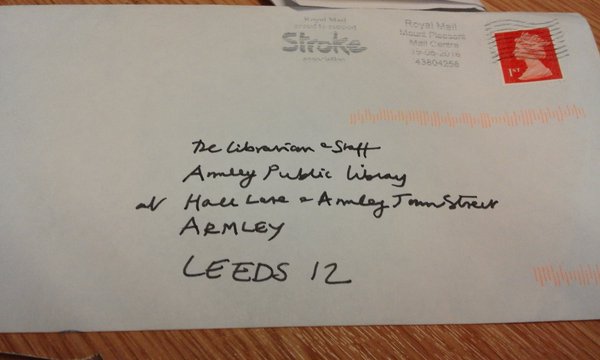 Royal Mail
proud to support
Stroke
association
Royal Mail
Mount Pleasant
Mail Centre
19-05-2016
43804256
1ST
The Librarian & Staff
Armley Public Library
at Hall Lane & Armley Town Street
ARMLEY
LEEDS 12